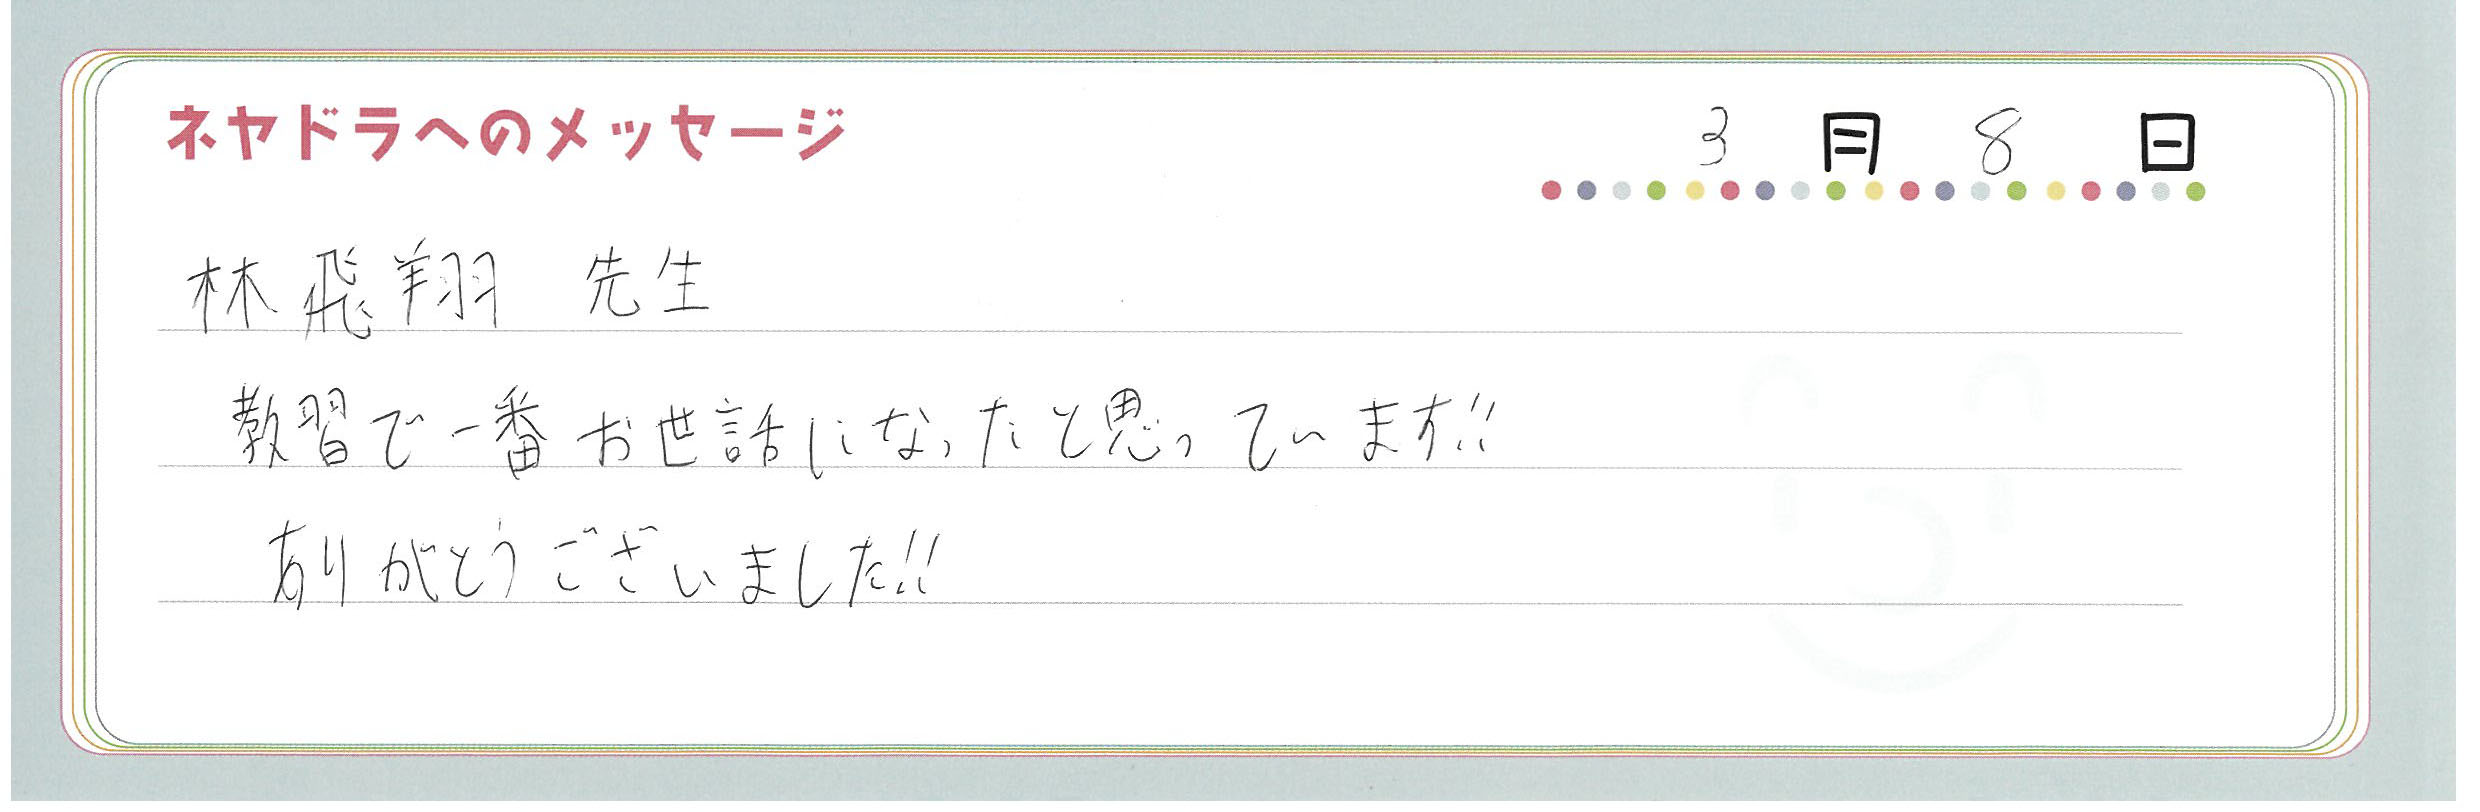 ネヤドラへのメッセージ
3月8日
林飛翔 先生
教習で一番お世話になったと思っています!!
ありがとうございました!!